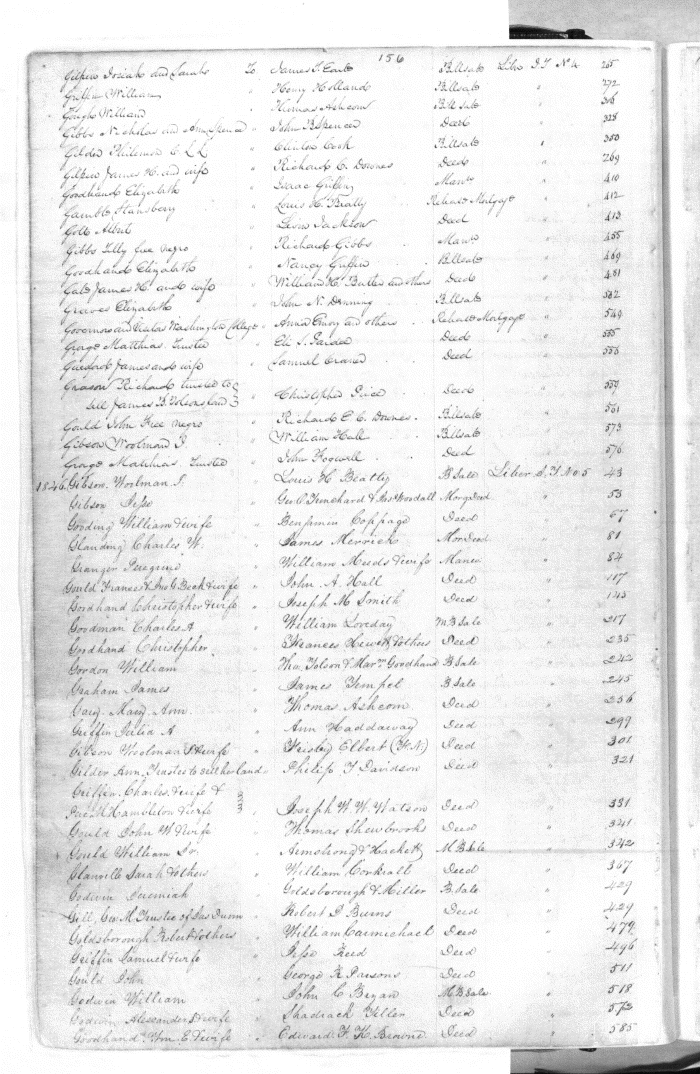 156
Gilpin Josiah and Sarah To James T. Earle Billsale Liber J T No 4 265
Griffin William " Henry Holland Billsale " 272
Gough William " Thomas Ashcom Bill Sale 306
Gibbs Nicholas and Ann Spencer " John B Spencer Deed " 328
Gilder Philemon C. " Clinton Cook Billsale " 350
Gilpin James H. and wife " Richard C. Downes Deed " 369
Goodhand Elizabeth " Isaac Griffin Manu " 410
Gamble Stansbury " Louis H. Beatty Release Mortgage " 412
Golt Albert " Levin Jackson Deed " 413
Gibbs Tilly free negro " Richard Gibbs Manu " 455
Goodhand Elizabeth " Nancy Griffin Billsale " 469
Gale James H. and wife " William H. Butler and others Deed " 481
Greaves Elizabeth " John N. Denning Billsale " 532
Governors and Visitors Washington College " Anna Emory and others Release Mortgage " 549
George Matthias Trustee " Eli S. Pardee Deed " 555
Guesford James and wife " Samuel Craner Deed " 556
Grason Richard trustee to
sell James B. land " Christopher Price Deed " 559
Gould John free negro " Richard E. C. Downes Billsale " 561
Gibson Woolman J. " William Hall Billsale " 573
George Matthias Trustee " John Fogwell Deed " 576
1846 Gibson Woolman J. " Louis H. Beatty B Sale Liber J. T No. 5 43
Gibson Jesse " Geo. C. Trenchard & Woodall Morg Deed " 53
Gooding William & wife " Benjamin Coppage Deed " 67
Glanding Charles W. " James Merrick Mor Deed " 81
Granger Peregrine " William Meeds & wife Manu " 84
Gould Frances & Jno G. Beck & wife " John A. Hall Deed " 117
Goodhand Christopher & wife " Joseph M Smith Deed " 143
Goodman Charles A " William Loveday M B Sale " 217
Goodhand Christopher " Frances Hewett & others Deed " 235
Gordon William " Tho. Tolson & Mar Goodhand B Sale " 242
Graham James " James Tempel B Sale " 245
Gary Mary Ann " Thomas Ashcom Deed " 256
Griffin Julia A " Ann Haddaway Deed " 299
Gibson Woolman J & wife " Frisby Elbert (F. N.) Deed " 301
Gilder Ann Trustee to sell her land " Philip T Davidson Deed " 321
Griffin Charles & wife &
Hambleton & wife " Joseph W. W. Watson Deed " 331
Gould John W & wife " Thomas Shewbrooks Deed " 341
Gould William Sr. " Armstrong & Hackett M. B Sale " 342
Glanville Sarah & others " William Corkrall Deed " 367
Godwin Jeremiah " Goldsborough & Miller B. Sale " 429
Gill, Geo. M. Trustee of Jas Dunn " Robert D Burns Deed " 429
Goldsborough Robert & others " William Carmichael Deed " 479
Griffin Samuel & wife " Jesse Reed Deed " 496
Gould John " George R Parsons Deed " 511
Godwin William " John C Bryan M B Sale " 518
Godwin Alexander S & wife " Shadrach Teller Deed " 573
Goodhand Wm. E. & wife " Edward F. H. Browne Deed " 585